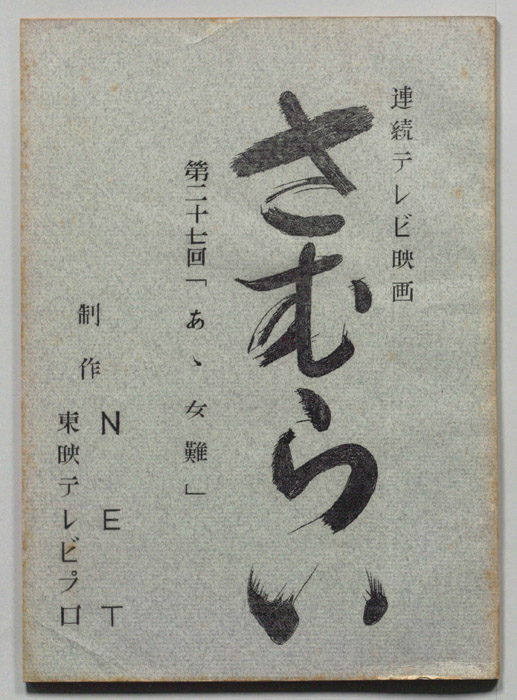 連続テレビ映画
さむらい
第二十七回「あゝ女難」
制作
NET
東映テレビプロ